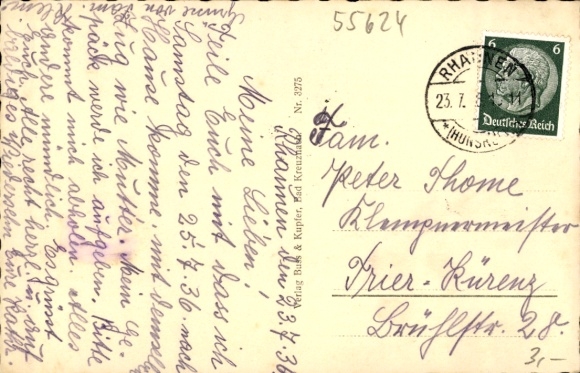 55624
6 6
Deutsches Reich
RHAUNEN
23.7.
(HUNSRÜCK)
Fam.
Peter Thome
Klempnermeister
Trier-Kürenz
Brühlstr. 28.
3,-
Verlag Bals & Kupfer, Bad Kreuznach Nr. 3275
Rhaunen den 23.7.36
Meine Lieben!
Teile Euch mit dass ich
Samstag den 25.7.36. nach
Hause komme, mit demselben
Zug wie Mutter. Mein Ge-
päck werde ich aufgeben. Bitte
kommt mich abholen. Alles
andere mündlich. Es grüßt
Euch Alle recht herzlich auf
baldiges Wiedersehn Eure Käthi
Grüsse von